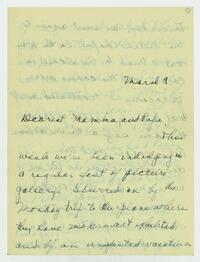 March 9
Dearest Mamma, and Papa,
This
week we've been indulging in
a regular fest of picture
gallery. Spurred on by the
Monday trip to the place where
they have modern art exhibited
and by an unexpected vacation